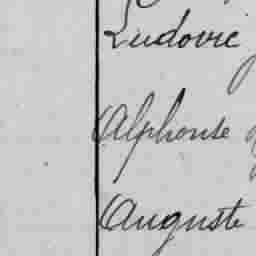 Ludovic
Alphonse
Auguste